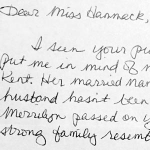 Dear Miss Hannack,
I seen your pu
put me in mind of m
Kent. Her married nam
husband hasn't been
Merrilson passed on y
strong family resemb